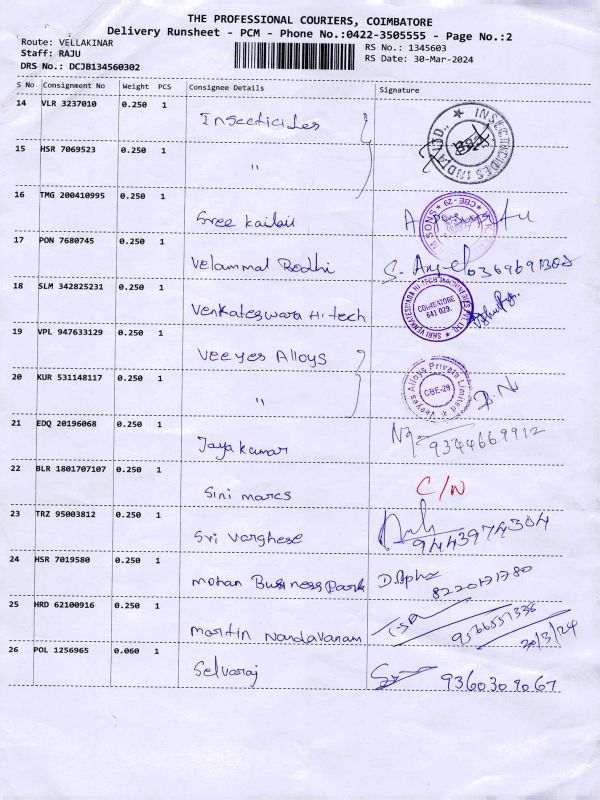 THE PROFESSIONAL COURIERS, COIMBATORE
Delivery Runsheet - PCM - Phone No.:0422-3505555 - Page No.:2
Route: VELLAKINAR
Staff: RAJU
DRS No.: DCJB134560302
RS No.: 1345603
RS Date: 30-Mar-2024
S No Consignment No Weight PCS Consignee Details Signature
14 VLR 3237010 0.250 1 Insecticides
INSECTICIDES INDIA LTD.
15 HSR 7069523 0.250 1 "
16 TMG 200410995 0.250 1 Sree Kailaii
SONS CBE-29
17 PON 7680745 0.250 1 Velammal Bodhi
18 SLM 342825231 0.250 1 Venkateswara Hi tech
SHRI VENKATESWARA HI-TECH MACHINERIES PVT. LTD. COIMBATORE 641 029.
19 VPL 947633129 0.250 1 Veeyes Alloys
Veeyes Alloys Private Limited CBE-29
20 KUR 531148117 0.250 1 "
21 EDQ 20196068 0.250 1 Jayakumar 9344669912
22 BLR 1801707107 0.250 1 Sini mares C/N
23 TRZ 95003812 0.250 1 Sri Varghese 9443974304
24 HSR 7019580 0.250 1 Mohan Business Park 8220171780
25 HRD 62100916 0.250 1 Martin Nandavanam 9566551336
26 POL 1256965 0.060 1 Selvaraj 9360309067